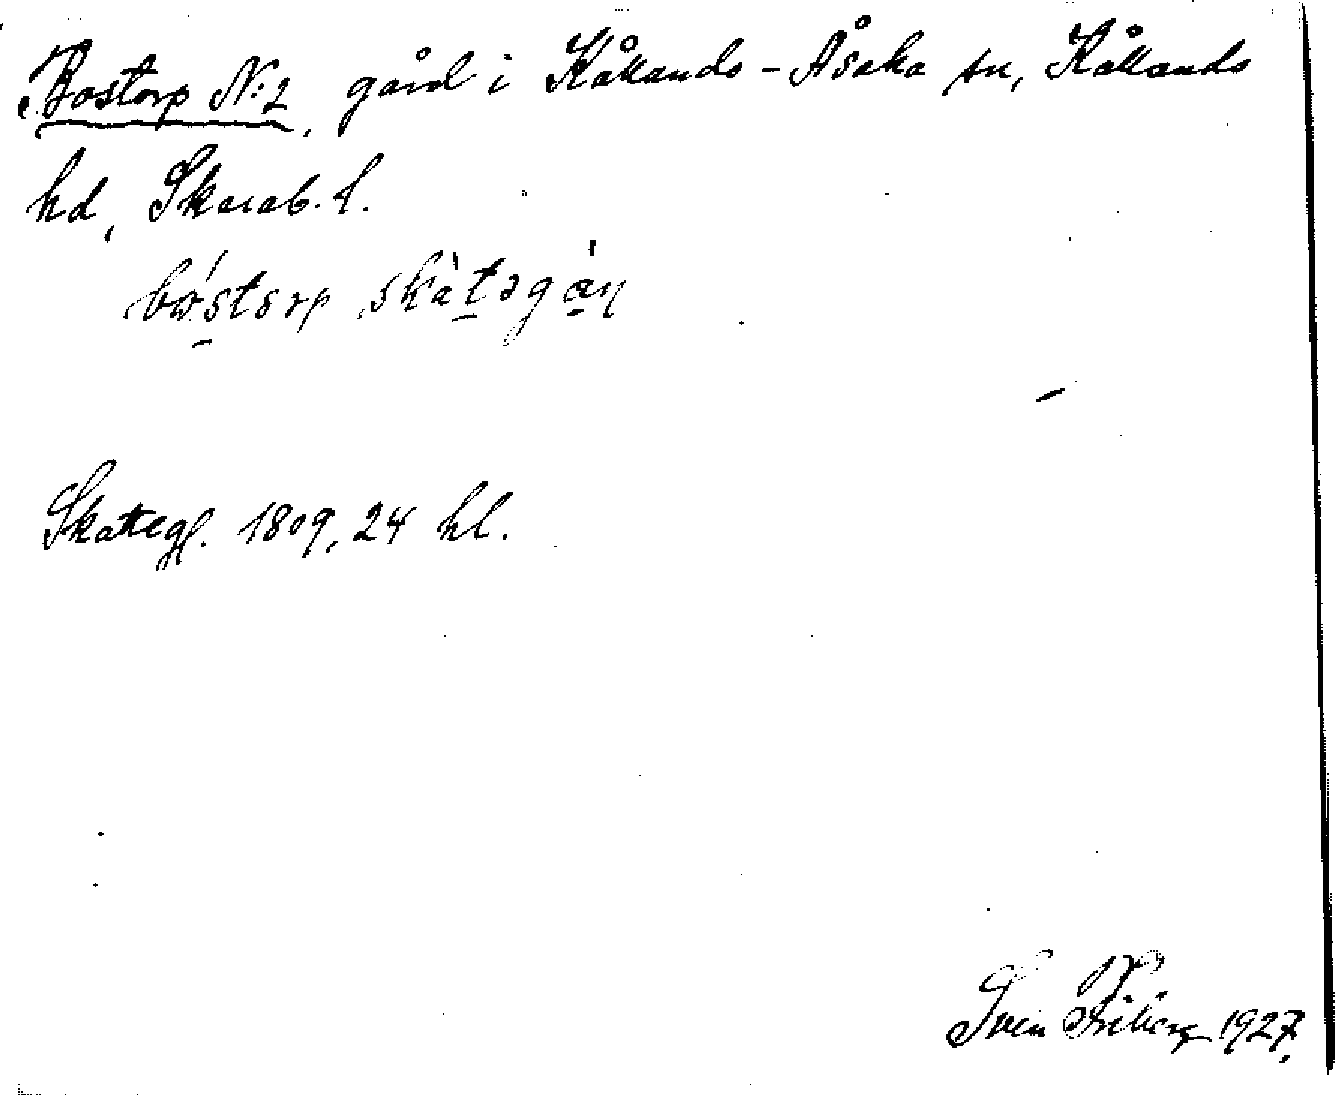 Bostorp N:2, gård i Kållands-Åsaka sn, Kållands
hd, Skarab. l.
bó̱storp skàt̠əgáṇ
Skattegl. 1809, 24 hl.
Sven Friberg 1927.